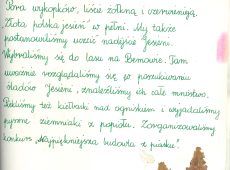 Pora wykopków, liście żółkną i czerwienieją.
Złota polska jesień w pełni. My także
postanowiliśmy uczcić nadejście Jesieni.
Wybraliśmy się do lasu na Bemowie. Tam
uważnie rozglądaliśmy się w poszukiwaniu
śladów Jesieni, znaleźliśmy ich całe mnóstwo.
Piekliśmy też kiełbaski nad ogniskiem i wyjadaliśmy
pyszne ziemniaki z popiołu. Zorganizowaliśmy
konkurs „Najpiękniejsza budowla z piasku"